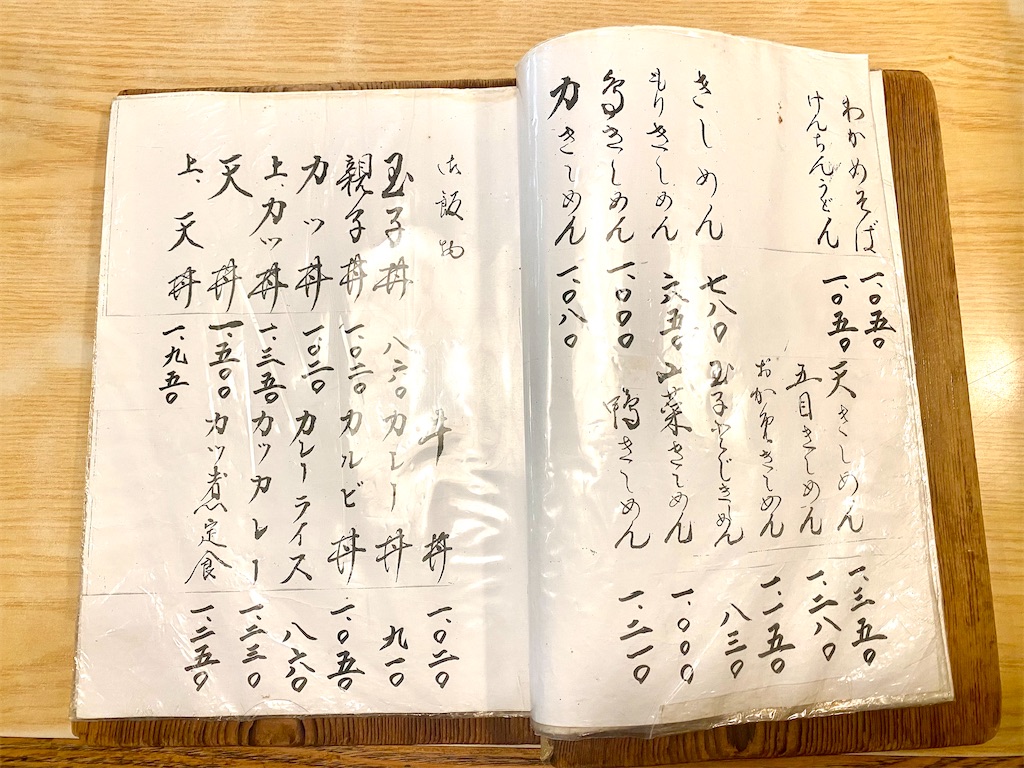 わかめそば 一、〇五〇
けんちんうどん 一、〇五〇
きしめん 七八〇
もりきしめん
鳥きしめん 一、〇〇〇
力きしめん 一、〇八〇
天きしめん 一、三五〇
五目きしめん 一、二八〇
おかめきしめん 一、一五〇
玉子とじきしめん 八三〇
山菜きしめん 一、〇〇〇
鴨きしめん 一、二一〇
御飯物
玉子丼 八六〇
親子丼 一、〇二〇
カツ丼 一、〇二〇
上、カツ丼 一、三五〇
天丼 一、五〇〇
上、天丼 一、九五〇
牛丼 一、〇二〇
カレー丼 九一〇
カルビ丼 一、〇五〇
カレーライス 八六〇
カツカレー 一、三三〇
カツ煮定食 一、二五〇